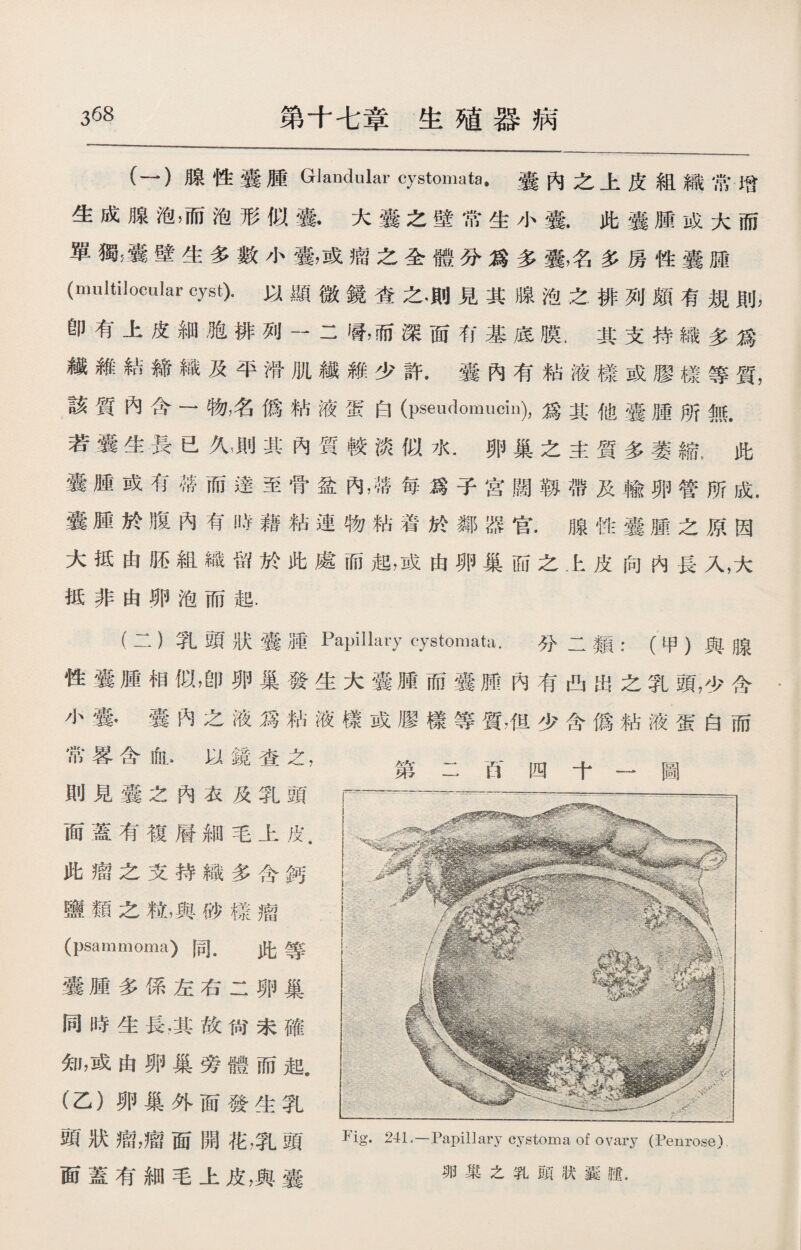 368 第十七章 生殖器病
(一) 腺性囊腫 Glandular cystomata. 囊內之上皮組織常增
生成腺泡,而泡形似囊. 大囊之壁常生小囊. 此囊腫或大而
單獨,囊壁生多數小囊,或瘤之全體分爲多囊,名多房性囊腫
(multilocular cyst). 以顯微鏡查之,則見其腺泡之排列頗有規則,
卽有上皮細胞排列一二層,而深面有基底膜. 其支持織多爲
纖維結締織及平滑肌纖維少許. 囊內有粘液樣或膠樣等質,
該質內含一物,名僞粘液蛋白 (pseudomucin), 爲其他囊腫所無.
若囊生長已久,則其內質較淡似水. 卵巢之主質多萎縮. 此
囊腫或有蒂而達至骨盆內,蒂每爲子宮闊韌帶及輸卵管所成.
囊腫於腹內有時藉粘連物粘着於鄰器官. 腺性囊腫之原因
大抵由胚組織留於此處而起,或由卵巢面之上皮向內長入,大
抵非由卵泡而起.
(二) 乳頭狀囊腫 Papillary cystomata. 分二類: (甲) 與腺
性囊腫相似,卽卵巢發生大囊腫而囊腫內有凸出之乳頭,少含
小囊. 囊內之液爲粘液樣或膠樣等質,但少含僞粘液蛋白而
常畧含血. 以鏡查之,
則見囊之內衣及乳頭
面蓋有複層細毛上皮.
此瘤之支持織多含鈣
鹽類之粒,與砂樣瘤
(psammoma) 同. 此等
囊腫多係左右二卵巢
同時生長,其故尙未確
知,或由卵巢旁體而起.
(乙) 卵巢外面發生乳
頭狀瘤,瘤面開花,乳頭
面蓋有細毛上皮,與囊
第二百四十一圖
Fig. 241.—Papillary cystoma of ovary (Penrose)
卵巢之乳頭狀囊腫.